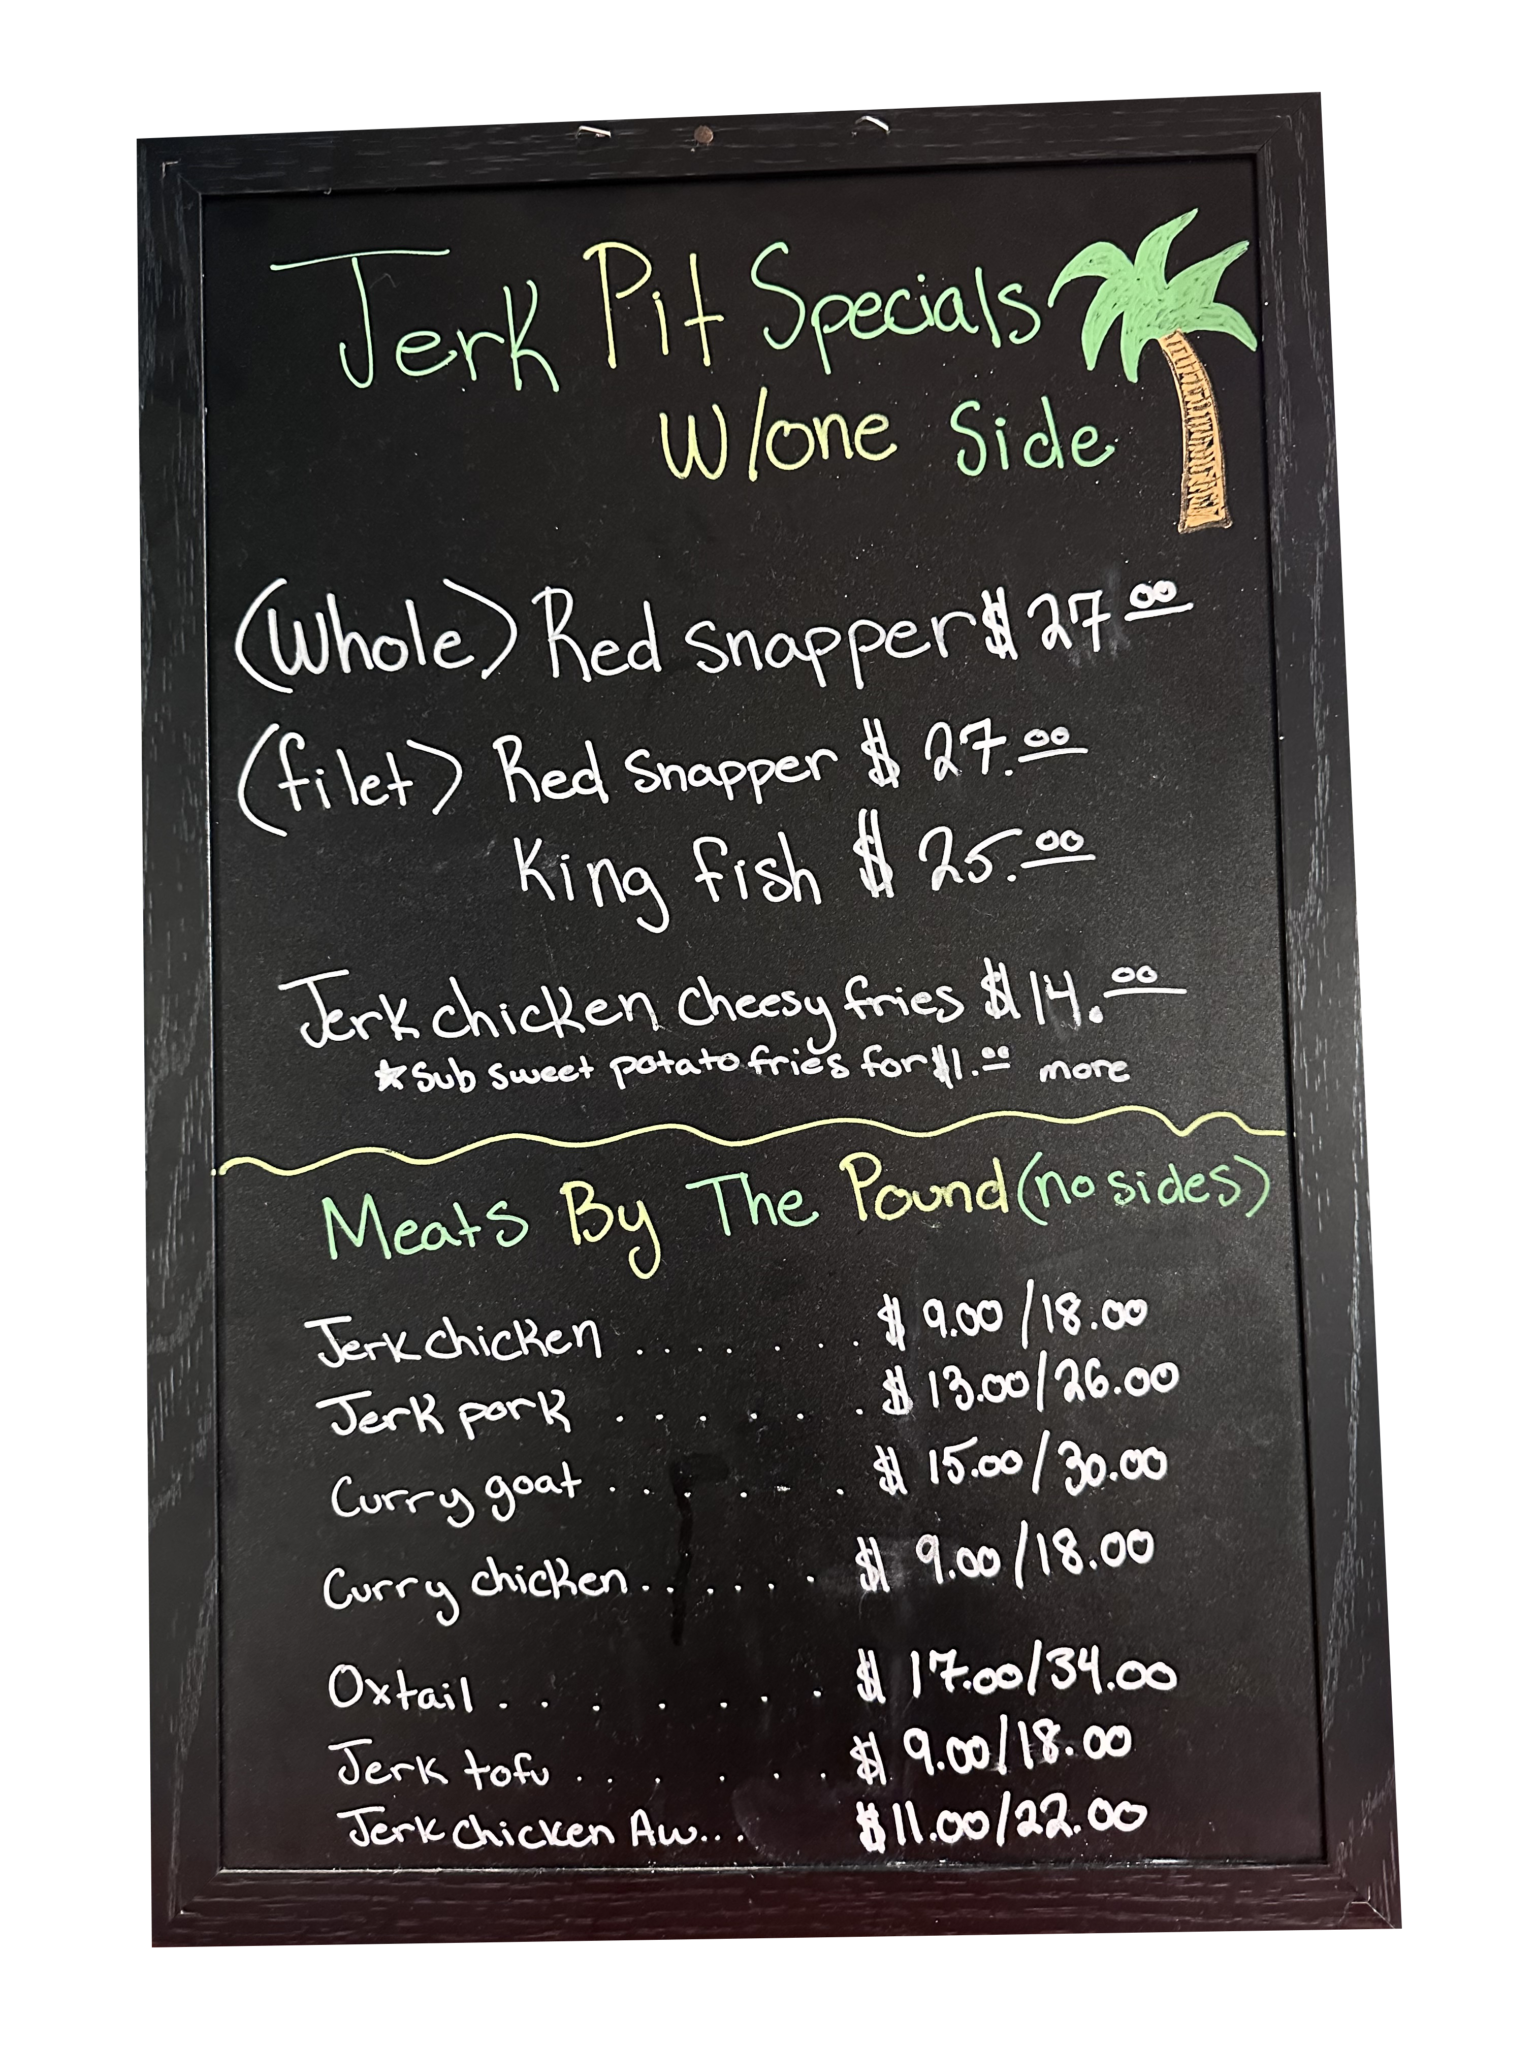 Jerk Pit Specials
w/one side
(Whole) Red snapper $27.00
(filet) Red snapper $27.00
King fish $25.00
Jerk chicken cheesy fries $14.00
*Sub sweet potato fries for $1.00 more
Meats By The Pound (no sides)
Jerk chicken ....... $9.00/18.00
Jerk pork ....... $13.00/26.00
Curry goat ....... $15.00/30.00
Curry chicken ...... $9.00/18.00
Oxtail ....... $17.00/34.00
Jerk tofu ....... $9.00/18.00
Jerk chicken AW... $11.00/22.00